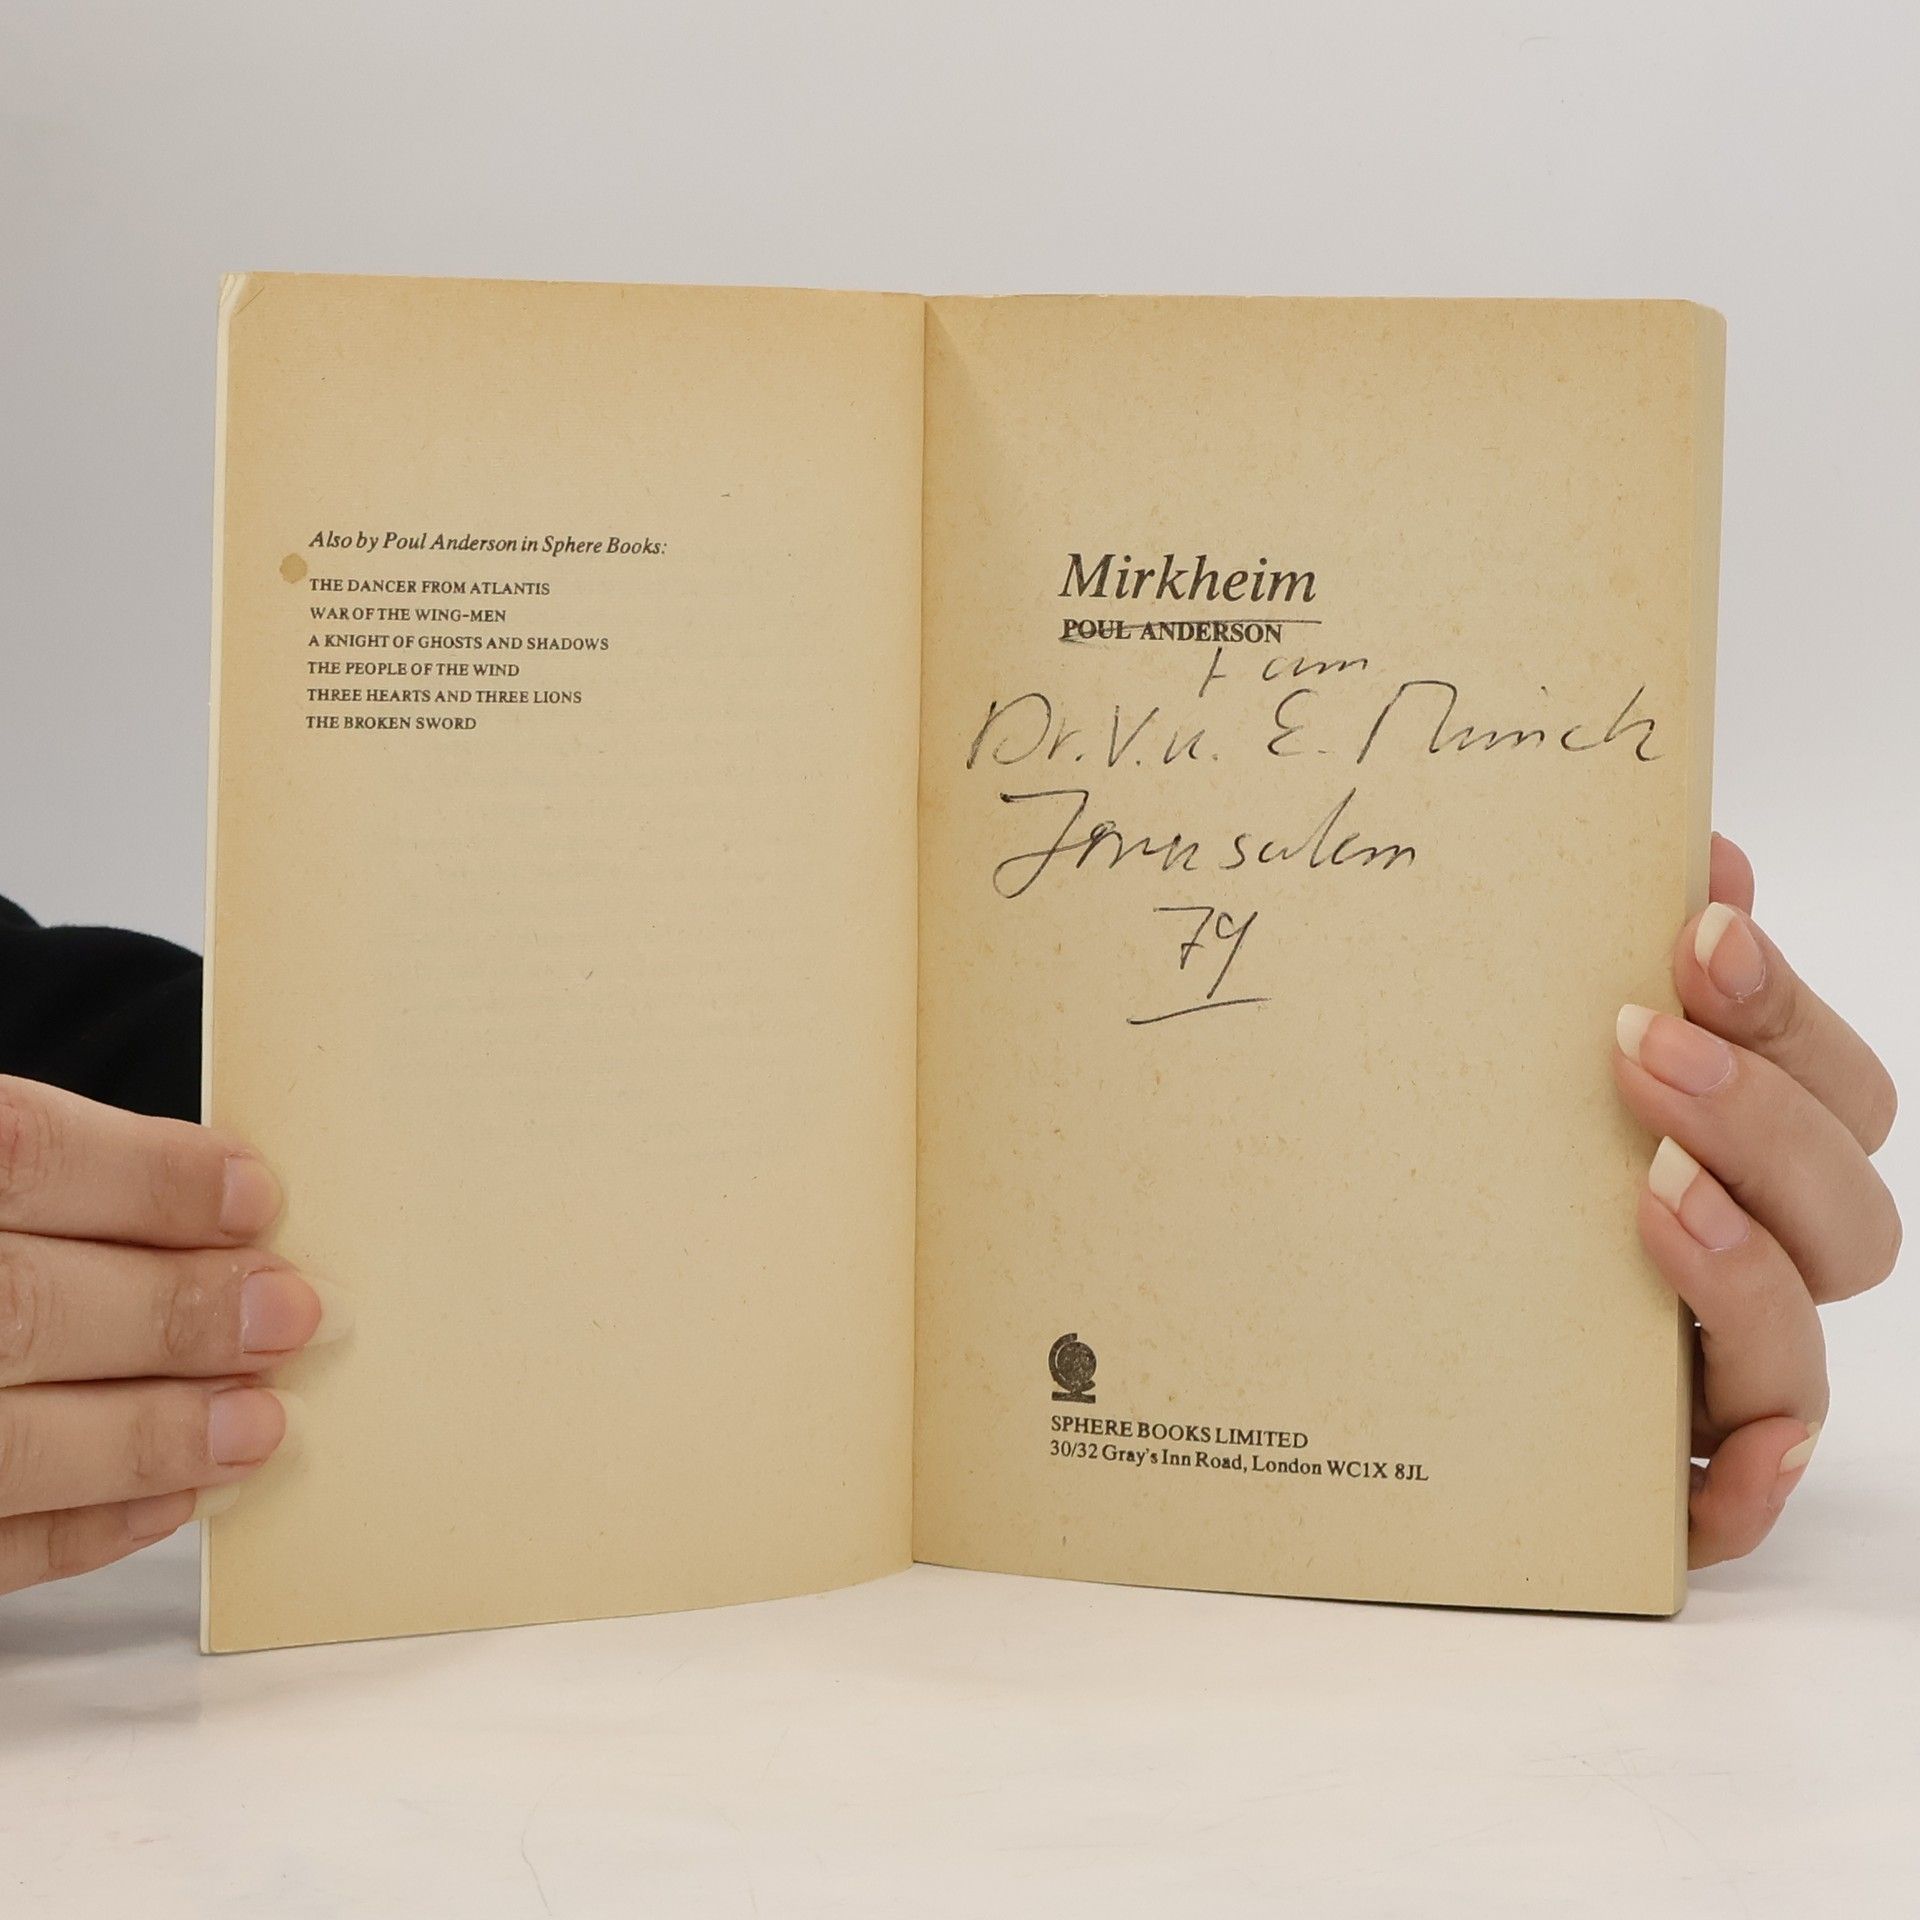 Also by Poul Anderson in Sphere Books:
THE DANCER FROM ATLANTIS
WAR OF THE WING-MEN
A KNIGHT OF GHOSTS AND SHADOWS
THE PEOPLE OF THE WIND
THREE HEARTS AND THREE LIONS
THE BROKEN SWORD
Mirkheim
POUL ANDERSON
am
Dr. V. u. E.
Jerusalem
79
SPHERE BOOKS LIMITED
30/32 Gray's Inn Road, London WC1X 8JL